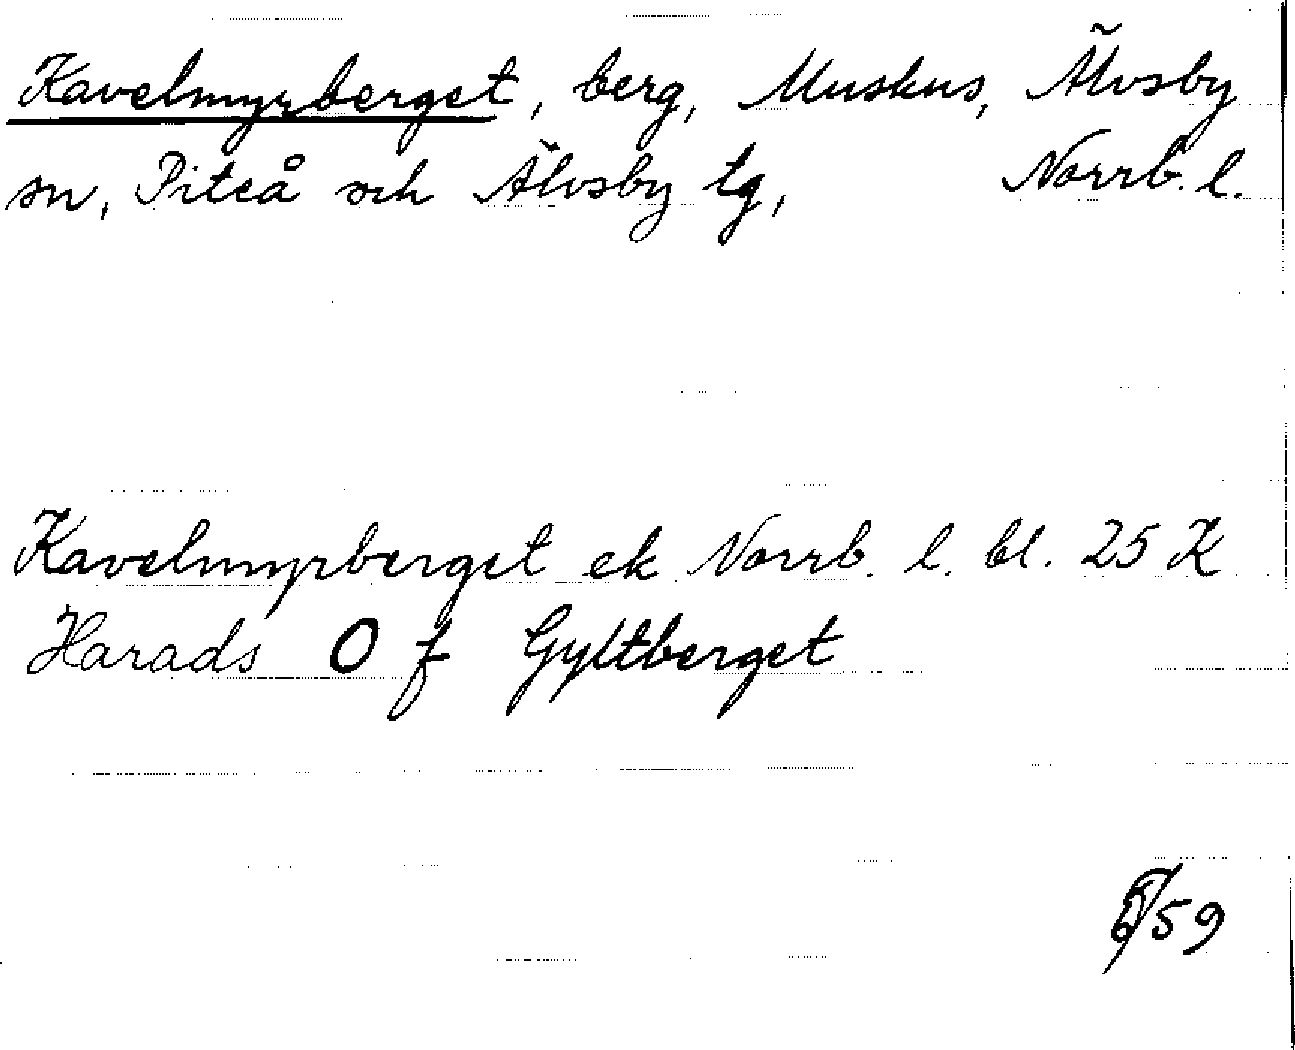 Kavelmyrberget, berg, Muskus, Älvsby
sn, Piteå och Älvsby tg, Norrb. l.
Kavelmyrberget ek Norrb. l. bl. 25 K
Harads O f Gyltberget
/59